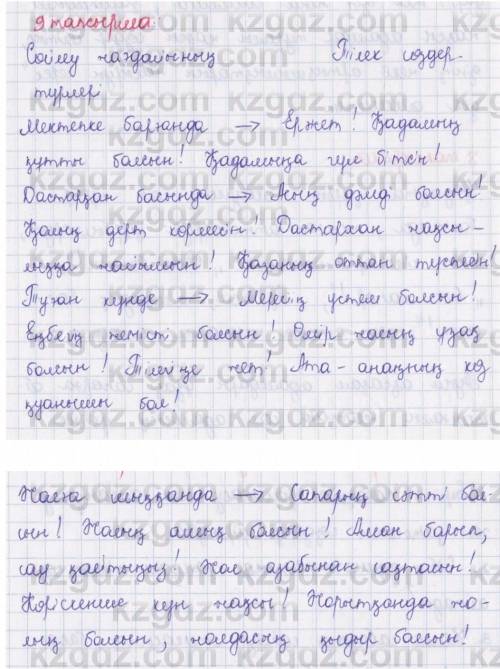 9 тапсырма
Сөйлеу жағдайының Тілек сөздер
түрлері
Мектепке барғанда → Ержет! Қадамың
құтты болсын! Қадамыңа гүл бітсін!
Дастарқан басында → Асың дәмді болсын!
Қолың дерт көрмесін! Дастархан жақсы-
лыққа жайылсын! Қазаның оттан түспесін!
Туған күнде → Мерейің үстем болсын!
Еңбегің жемісті болсын! Өмір жасың ұзақ
болсын! Тілегіңе жет! Ата-анаңның көз
қуанышы бол!
Жолға шыққанда → Сапарың сәтті бол-
сын! Жолың ашық болсын! Аман барып,
сау қайтыңыз! Жол азабынан сақтасын!
Көріскенше күн жақсы! Жорытқанда жо-
лың болсын, жолдасың қыдыр болсын!
kzgdz.com